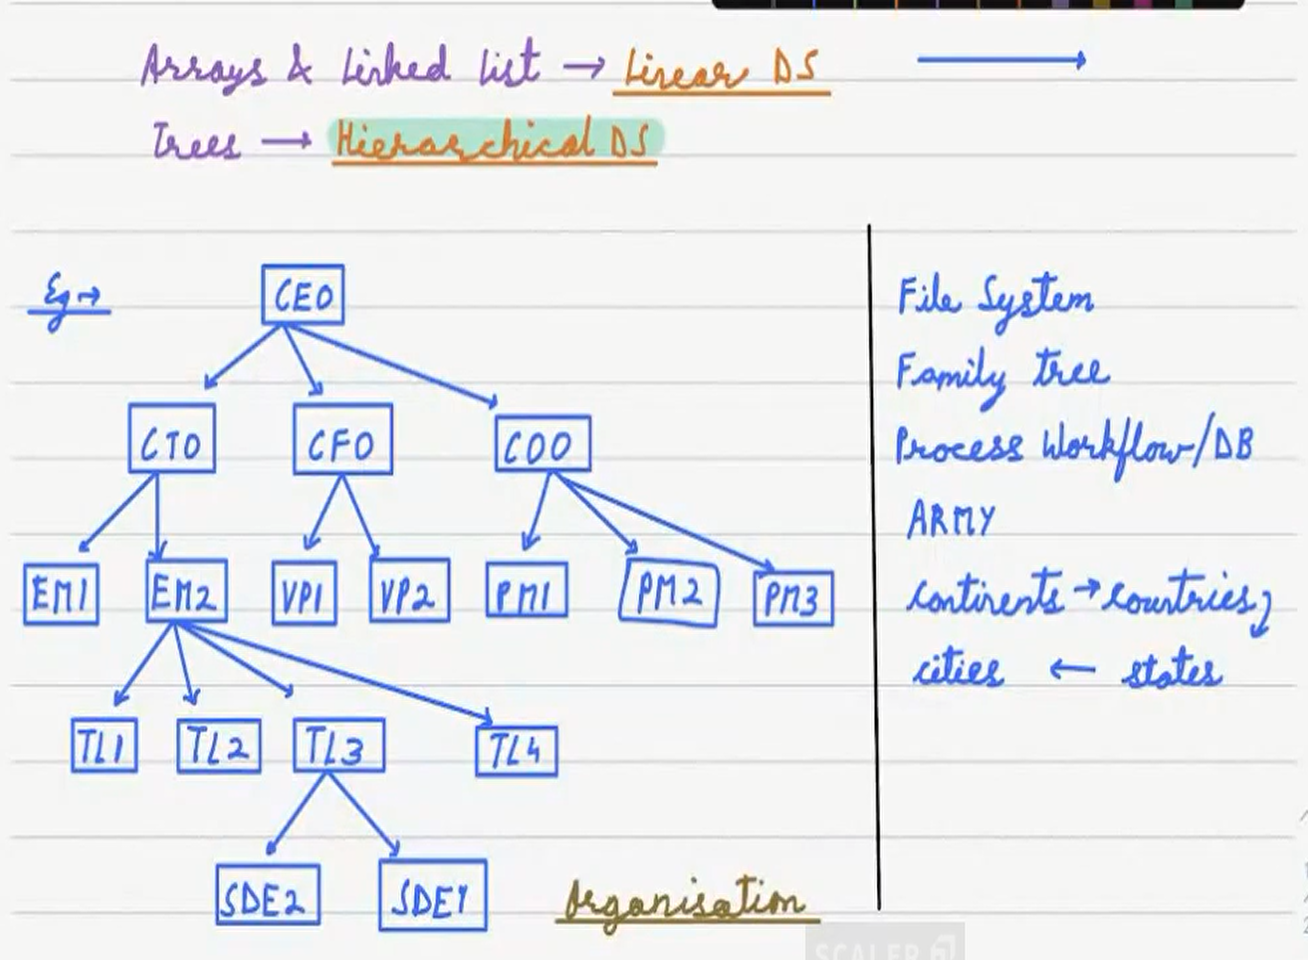 Arrays & Linked List → Linear DS
Trees → Hierarchical DS
Eg →
CEO
CTO CFO COO
EM1 EM2 VP1 VP2 PM1 PM2 PM3
TL1 TL2 TL3 TL4
SDE2 SDE1
Organisation
File System
Family tree
Process Workflow/DB
ARMY
Continents → Countries
cities ← states
SCALER